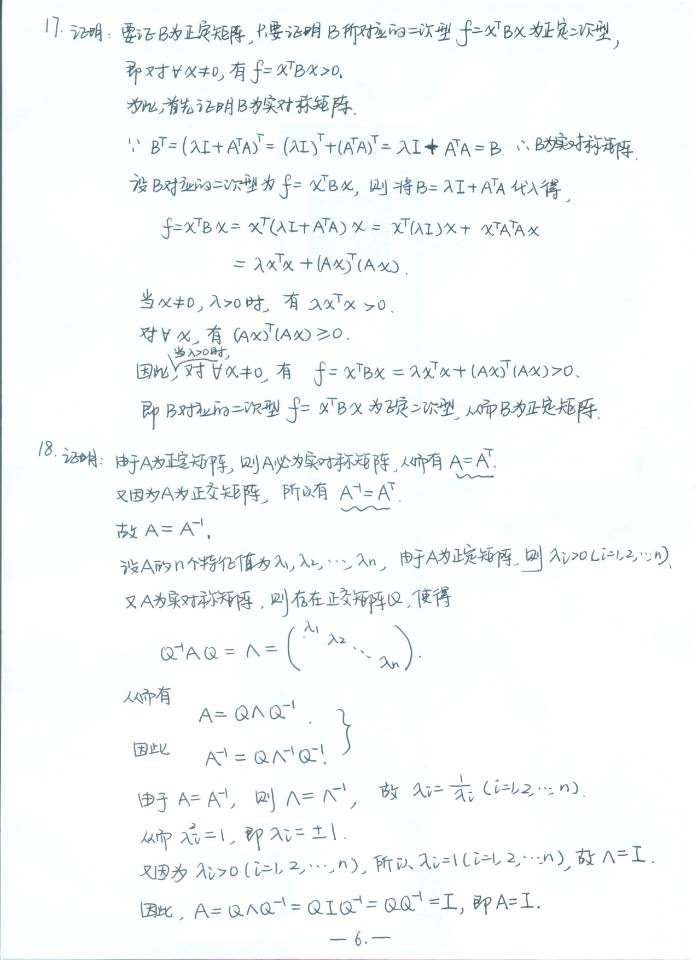 17. 证明: 要证B为正定矩阵,只要证明B所对应的二次型 f=xᵀBx为正定二次型,
即对∀x≠0,有f=xᵀBx>0.
为此,首先证明B为实对称矩阵.
∵ Bᵀ=(λI+AᵀA)ᵀ=(λI)ᵀ+(AᵀA)ᵀ=λI+AᵀA=B. ∴B为实对称矩阵.
设B对应的二次型为f=xᵀBx, 则将B=λI+AᵀA代入得,
f=xᵀBx=xᵀ(λI+AᵀA)x=xᵀ(λI)x+xᵀAᵀAx
=λxᵀx+(Ax)ᵀ(Ax).
当x≠0,λ>0时, 有λxᵀx>0.
对∀x,有(Ax)ᵀ(Ax)≥0.
当λ>0时,
因此,对∀x≠0,有 f=xᵀBx=λxᵀx+(Ax)ᵀ(Ax)>0.
即B对应的二次型f=xᵀBx为正定二次型,从而B为正定矩阵.
18. 证明: 由于A为正定矩阵,则A必为实对称矩阵,从而有A=Aᵀ.
又因为A为正交矩阵, 所以有A⁻¹=Aᵀ.
故A=A⁻¹.
设A的n个特征值为λ₁,λ₂,⋯,λₙ, 由于A为正定矩阵,则λᵢ>0(i=1,2,⋯,n).
又A为实对称矩阵,则存在正交矩阵Q,使得
Q⁻¹AQ=Λ=(λ₁ λ₂ ⋱ λₙ).
从而有 A=QΛQ⁻¹.
因此 A⁻¹=QΛ⁻¹Q⁻¹. }
由于A=A⁻¹, 则Λ=Λ⁻¹, 故λᵢ=1/λᵢ (i=1,2,⋯,n).
从而λᵢ²=1,即λᵢ=±1.
又因为λᵢ>0(i=1,2,⋯,n),所以λᵢ=1(i=1,2,⋯,n),故Λ=I.
因此, A=QΛQ⁻¹=QIQ⁻¹=QQ⁻¹=I, 即A=I.
— 6. —